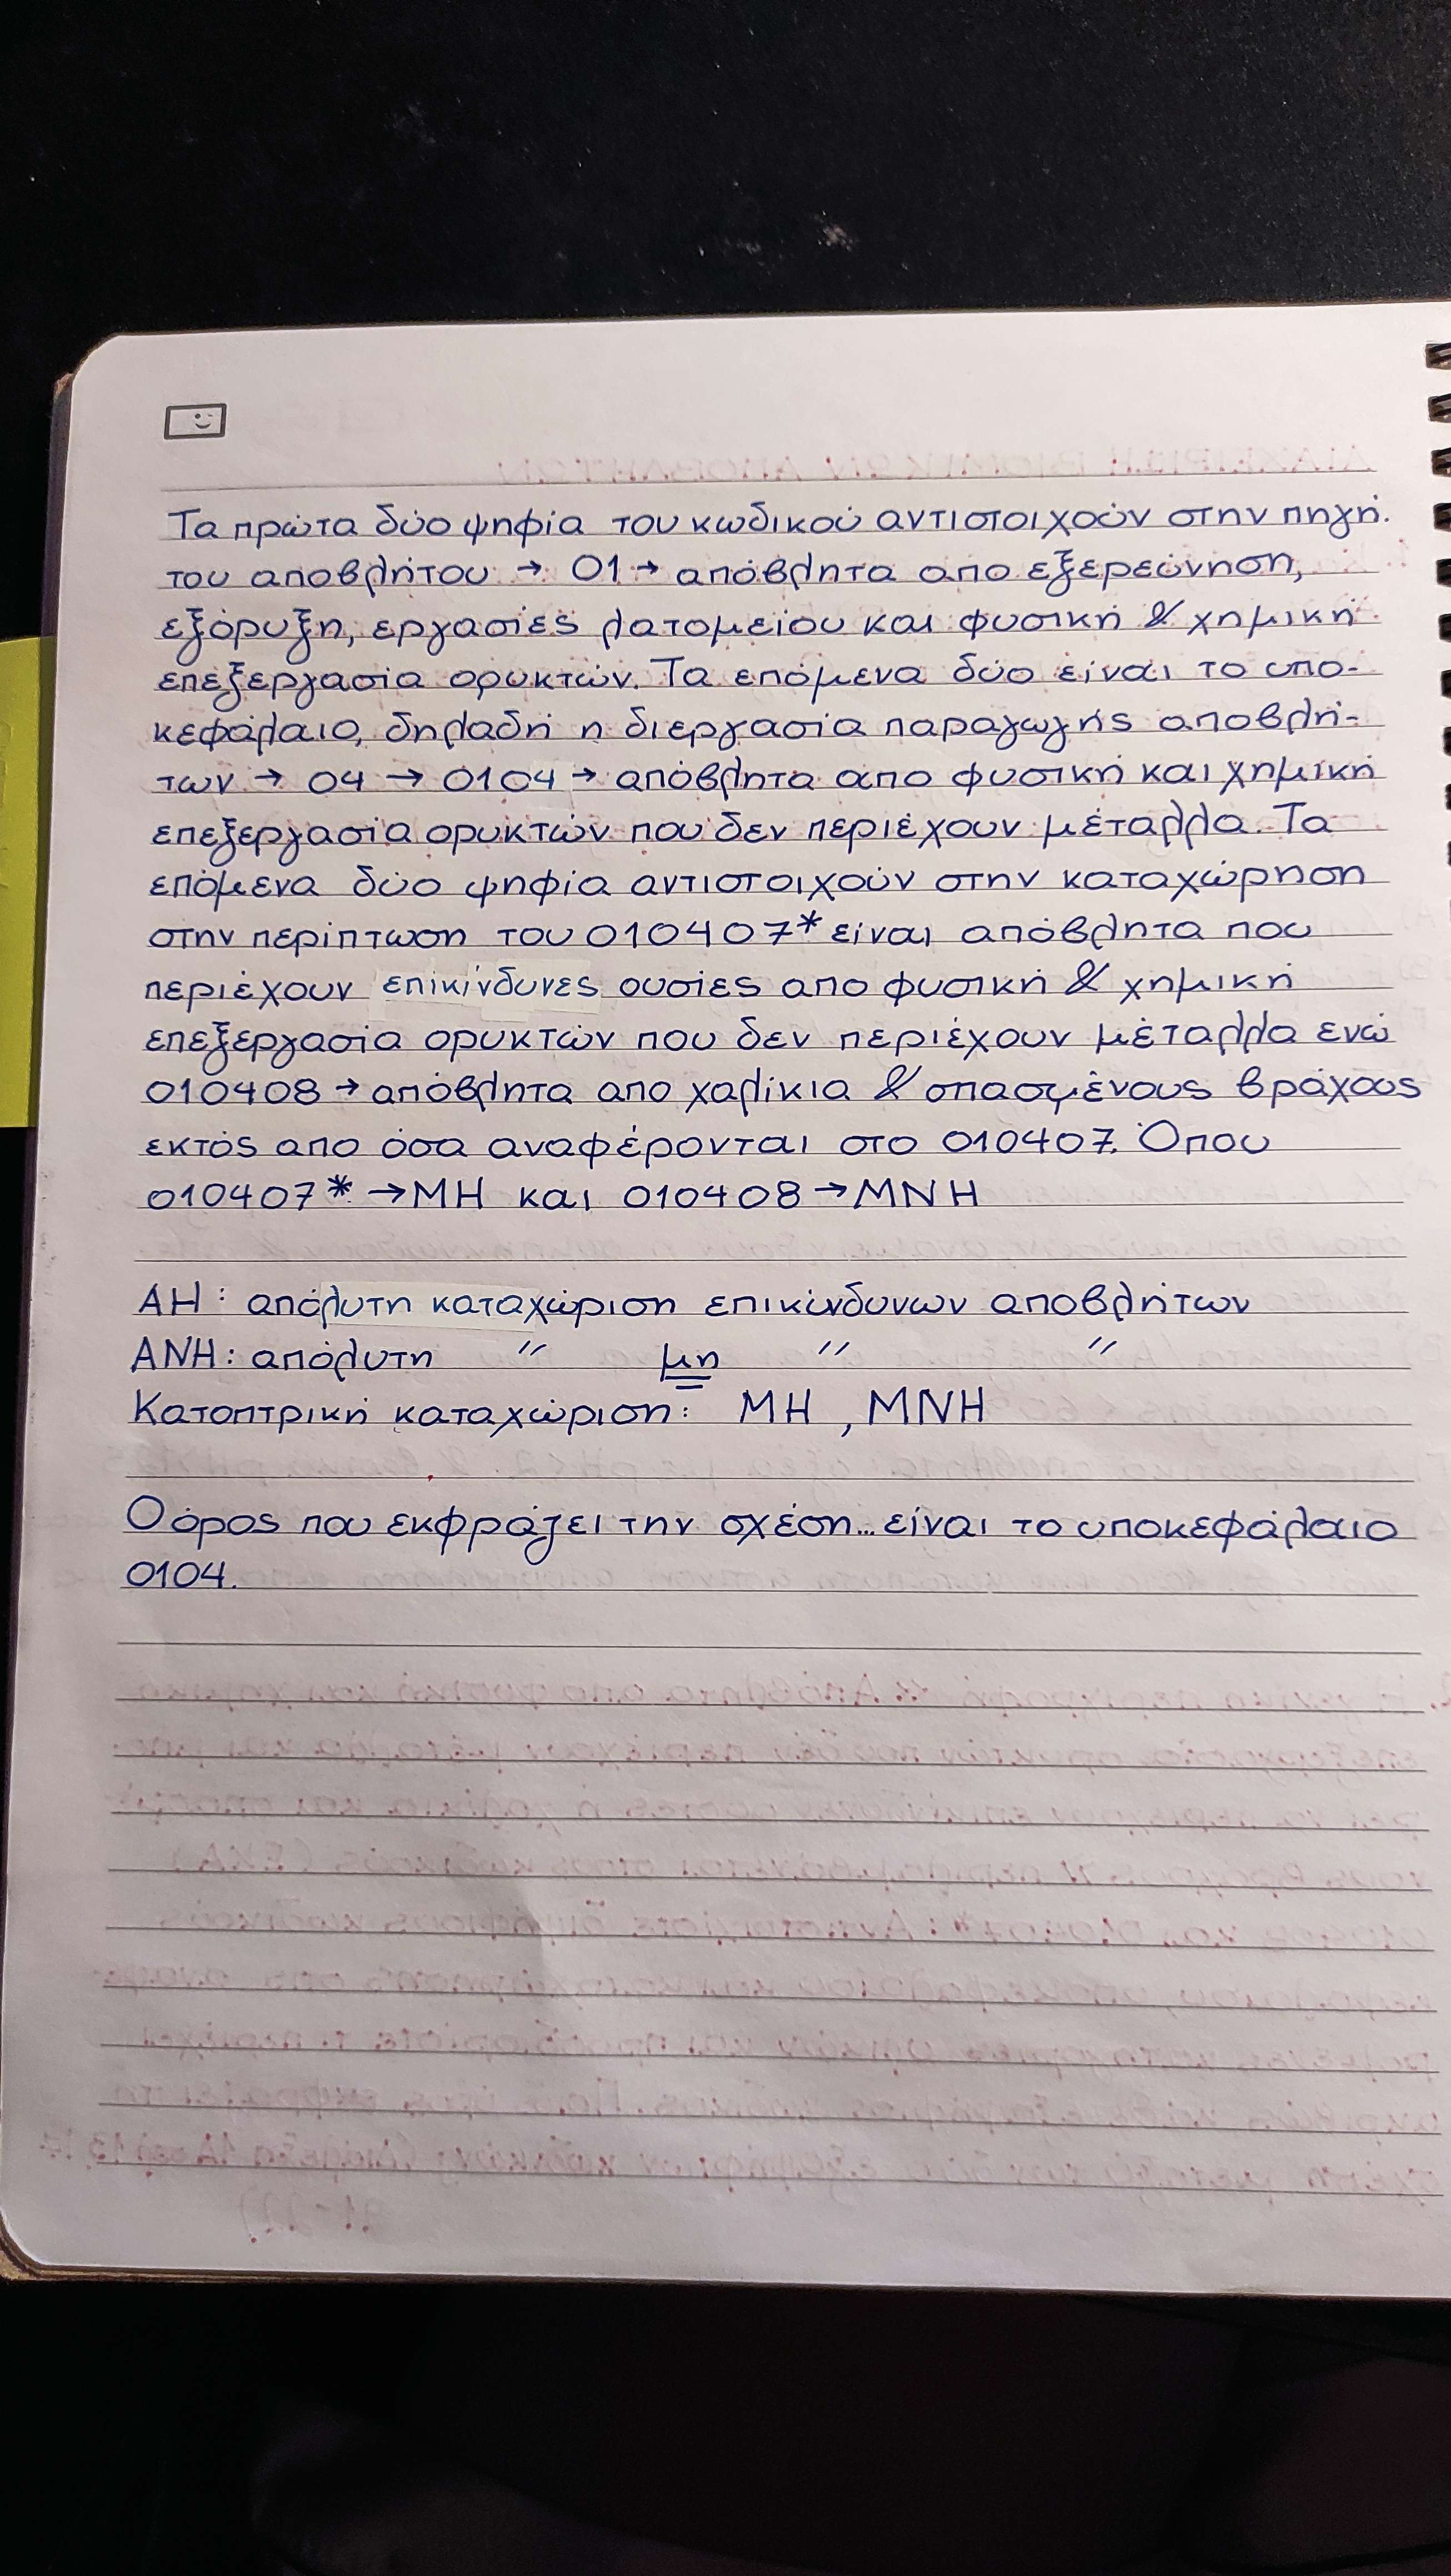 Τα πρώτα δύο ψηφία του κωδικού αντιστοιχούν στην πηγή.
του αποβλήτου → 01 → απόβλητα απο εξερεύνηση,
εξόρυξη, εργασίες λατομείου και φυσική & χημική
επεξεργασία ορυκτών. Τα επόμενα δύο είναι το υπο-
κεφάλαιο, δηλαδή η διεργασία παραγωγής αποβλή-
των → 04 → 0104 → απόβλητα απο φυσική και χημική
επεξεργασία ορυκτών που δεν περιέχουν μέταλλα. Τα
επόμενα δύο ψηφία αντιστοιχούν στην καταχώρηση
στην περίπτωση του 010407* είναι απόβλητα που
περιέχουν επικίνδυνες ουσίες απο φυσική & χημική
επεξεργασία ορυκτών που δεν περιέχουν μέταλλα ενώ
010408 → απόβλητα απο χαλίκια & σπασμένους βράχους
εκτός απο όσα αναφέρονται στο 010407. Όπου
010407* → ΜΗ και 010408 → ΜΝΗ
ΑΗ: απόλυτη καταχώριση επικίνδυνων αποβλήτων
ΑΝΗ: απόλυτη " μη " "
Κατοπτρική καταχώριση: ΜΗ , ΜΝΗ
Ο όρος που εκφράζει την σχέση... είναι το υποκεφάλαιο
0104.